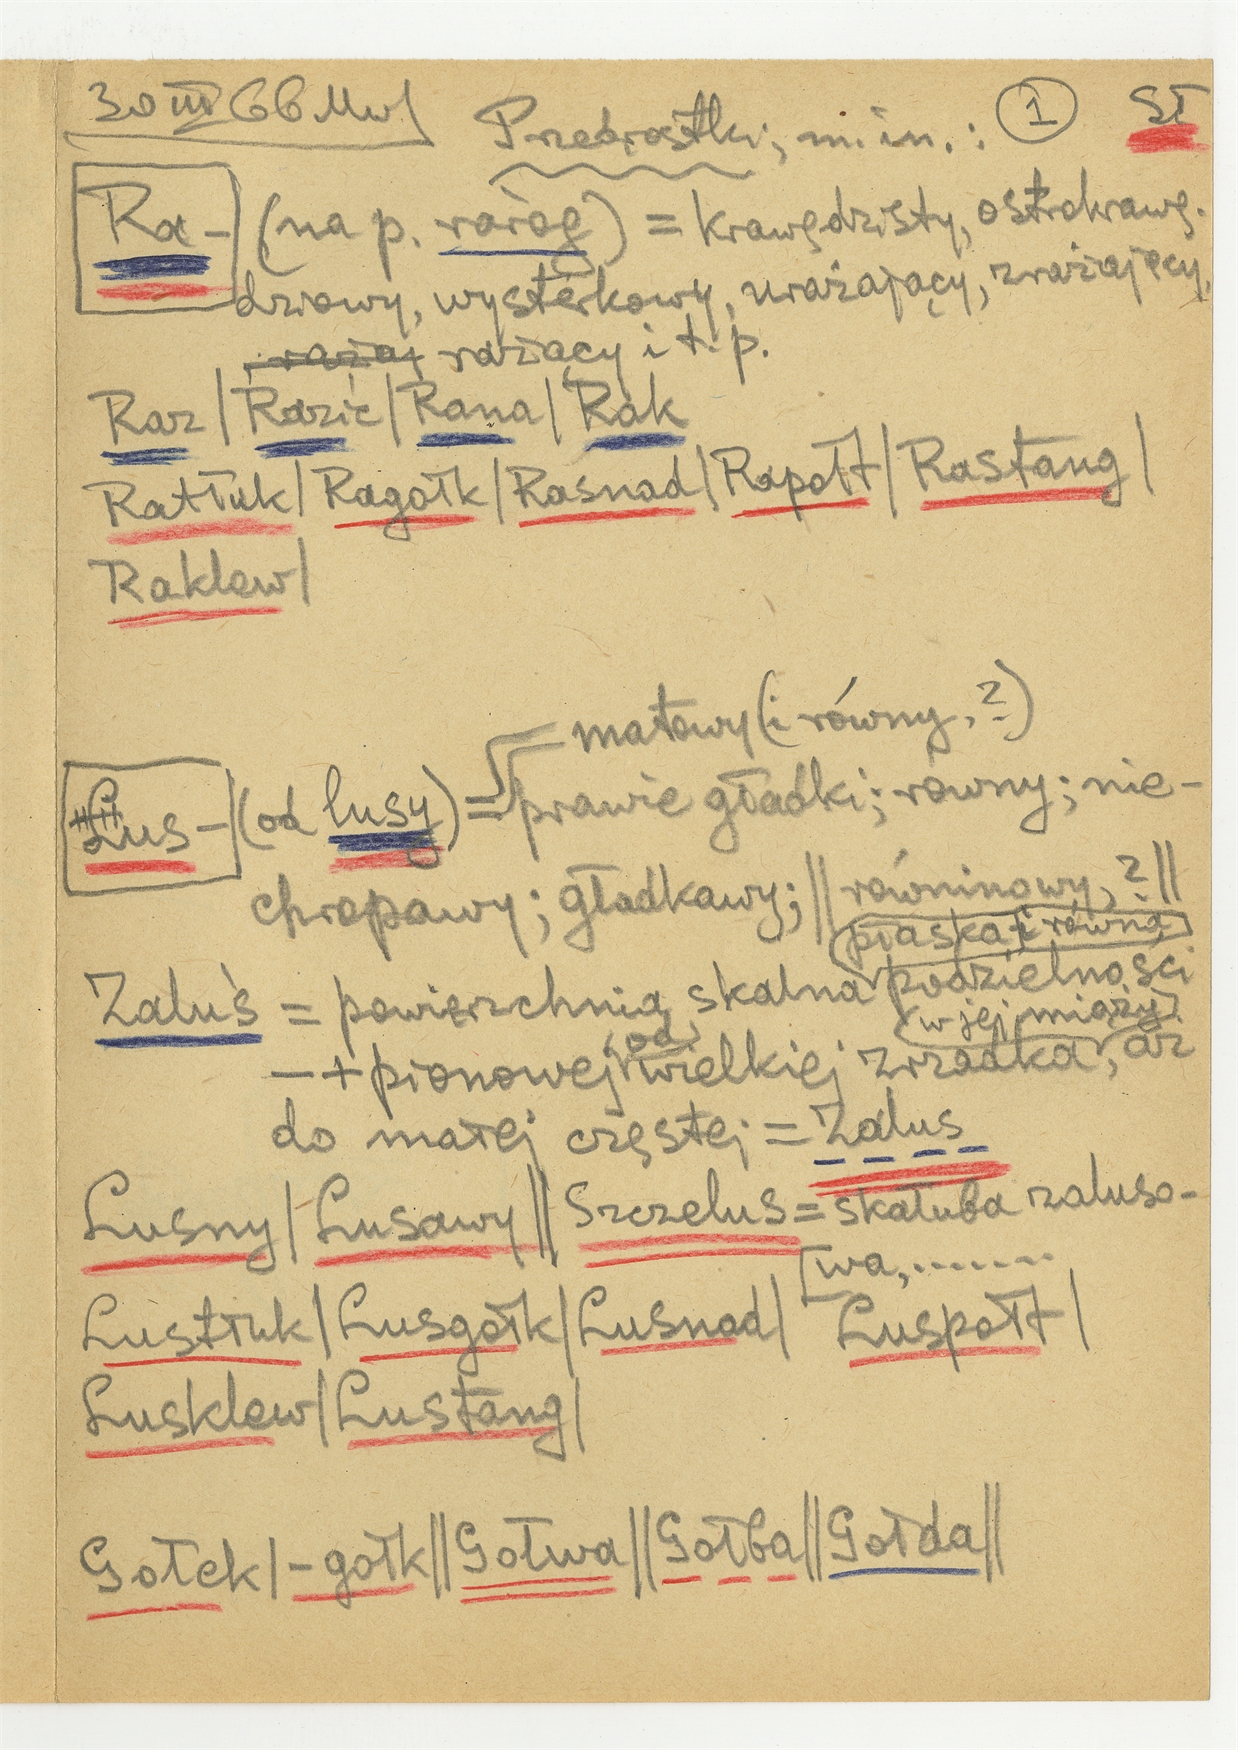 30 III 66 Mw|
Przedrostki, m. in.: 1 SŁ
Ra- (na p. raróg) = krawędzisty, ostrokrawę-
dziowy, wysterkowy, urażający, zrażający,
rażąj rażący i t. p.
Raz | Razić | Rana | Rak
Ratłuk | Ragołk | Rasnad | Rapołt | Rastang |
Raklew |
matowy (i równy, ?)
Lus- (od lusy) = prawie gładki; równy; nie-
chropawy; gładkawy; || równinowy, ? ||
płaska i równa
Zaluś = powierzchnia skalna podzielności
(w jej miąższy)
- + pionowej (od) wielkiej zrzadka, aż
do małej częstej = Zalus
Lusny | Lusawy || Szczelus = skałuba zaluso-
[wa, .......
Lustłuk | Lusgołk | Lusnad | Luspołt |
Lusklew | Lustang |
Gołek | -gołk || Gołwa || Gołba || Gołda ||